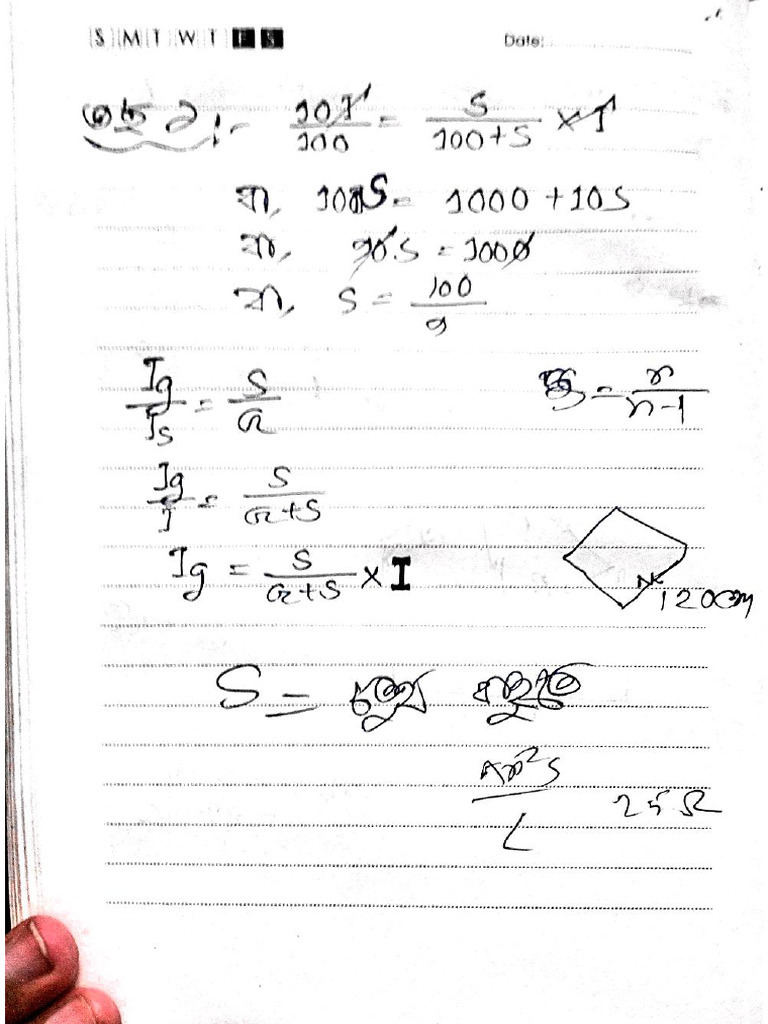 S M T W T F S Date:
10I/100 = S/100+S × I
বা, 100S = 1000 + 10S
বা, 90S = 1000
বা, S = 100/9
Ig/Is = S/G = n/n-1
Ig/I = S/G+S
Ig = S/G+S × I
120cm
S =
πr²S/L 25Ω